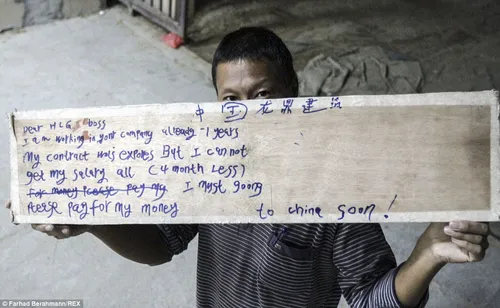 中国龙鼎建
Dear HLG boss
I am working in your company already -1 years
My contract was expores But I can not
get my salary all (4 month Less)
For money Please pay my I must goong
Please pay for my money to china soon!
© Farhad Berahmann/REX